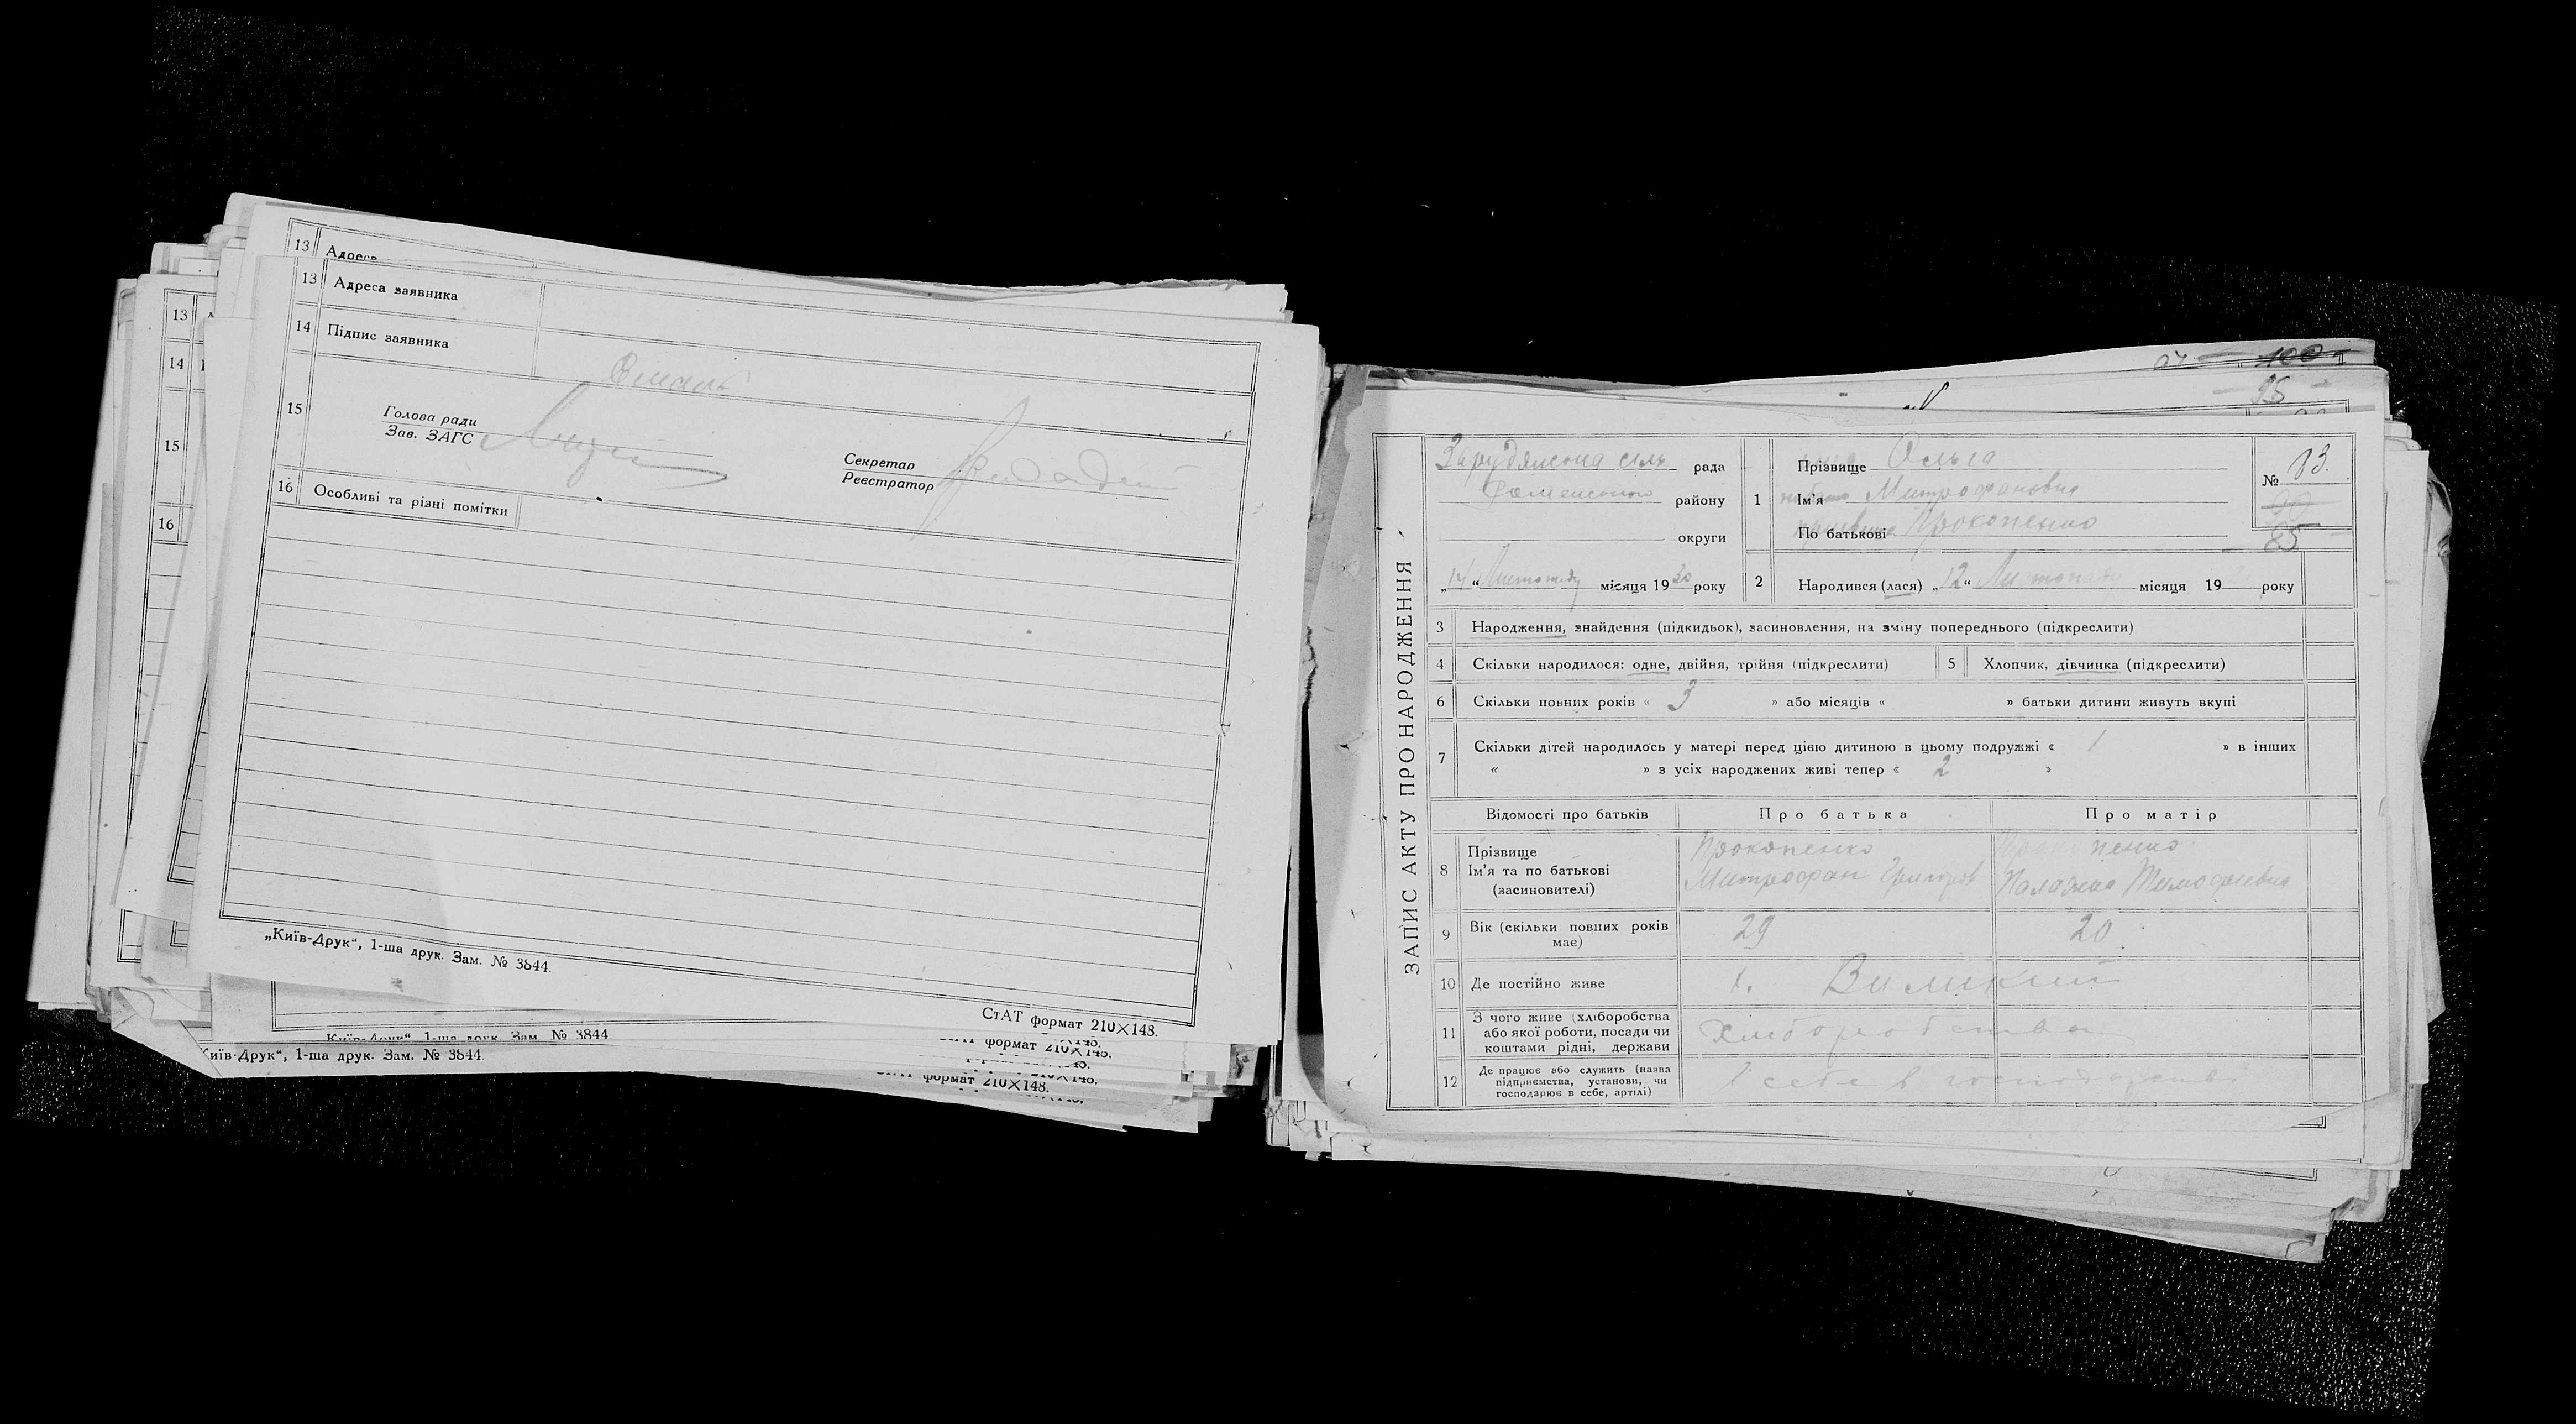 13 Адреса
13 Адреса заявника
14 Підпис заявника
15
Голова ради
Зав. ЗАГС
Секретар
Реєстратор
16 Особливі та різні помітки
„Київ-Друк“, 1-ша друк. Зам. № 3844.
СтАТ формат 210×148.
13
14
15
16
Київ-Друк“, 1-ша друк. Зам. № 3844
формат 210×148.
Київ-Друк“, 1-ша друк. Зам. № 3844.
формат 210×148.
100
95
ЗАПИС АКТУ ПРО НАРОДЖЕННЯ
рада
Роменського району
округи
„14“ Листопаду місяця 1930 року
1 Прізвище Ольга
Ім'я Митрофановна
По батькові Прокопенко
№ 83.
85
2 Народився (лася) „12“ Листопаду місяця 19 року
3 Народження, знайдення (підкидьок), засиновлення, на зміну попереднього (підкреслити)
4 Скільки народилося: одне, двійня, трійня (підкреслити) 5 Хлопчик, дівчинка (підкреслити)
6 Скільки повних років « 3 » або місяців « » батьки дитини живуть вкупі
7 Скільки дітей народилось у матері перед цією дитиною в цьому подружжі « 1 » в інших
« » з усіх народжених живі тепер « 2 »
Відомості про батьків Про батька Про матір
8 Прізвище Прокопенко Прокопенко
Ім'я та по батькові Митрофан Григоров Палажка Тимофіевна
(засновителі)
9 Вік (скільки повних років має) 29 20
10 Де постійно живе х.
11 З чого живе (хліборобства або якої роботи, посади чи коштами рідні, держави Хліборобства
12 Де працює або служить (назва підприємства, установи, чи господарює в себе, артілі) в себе в господарстві